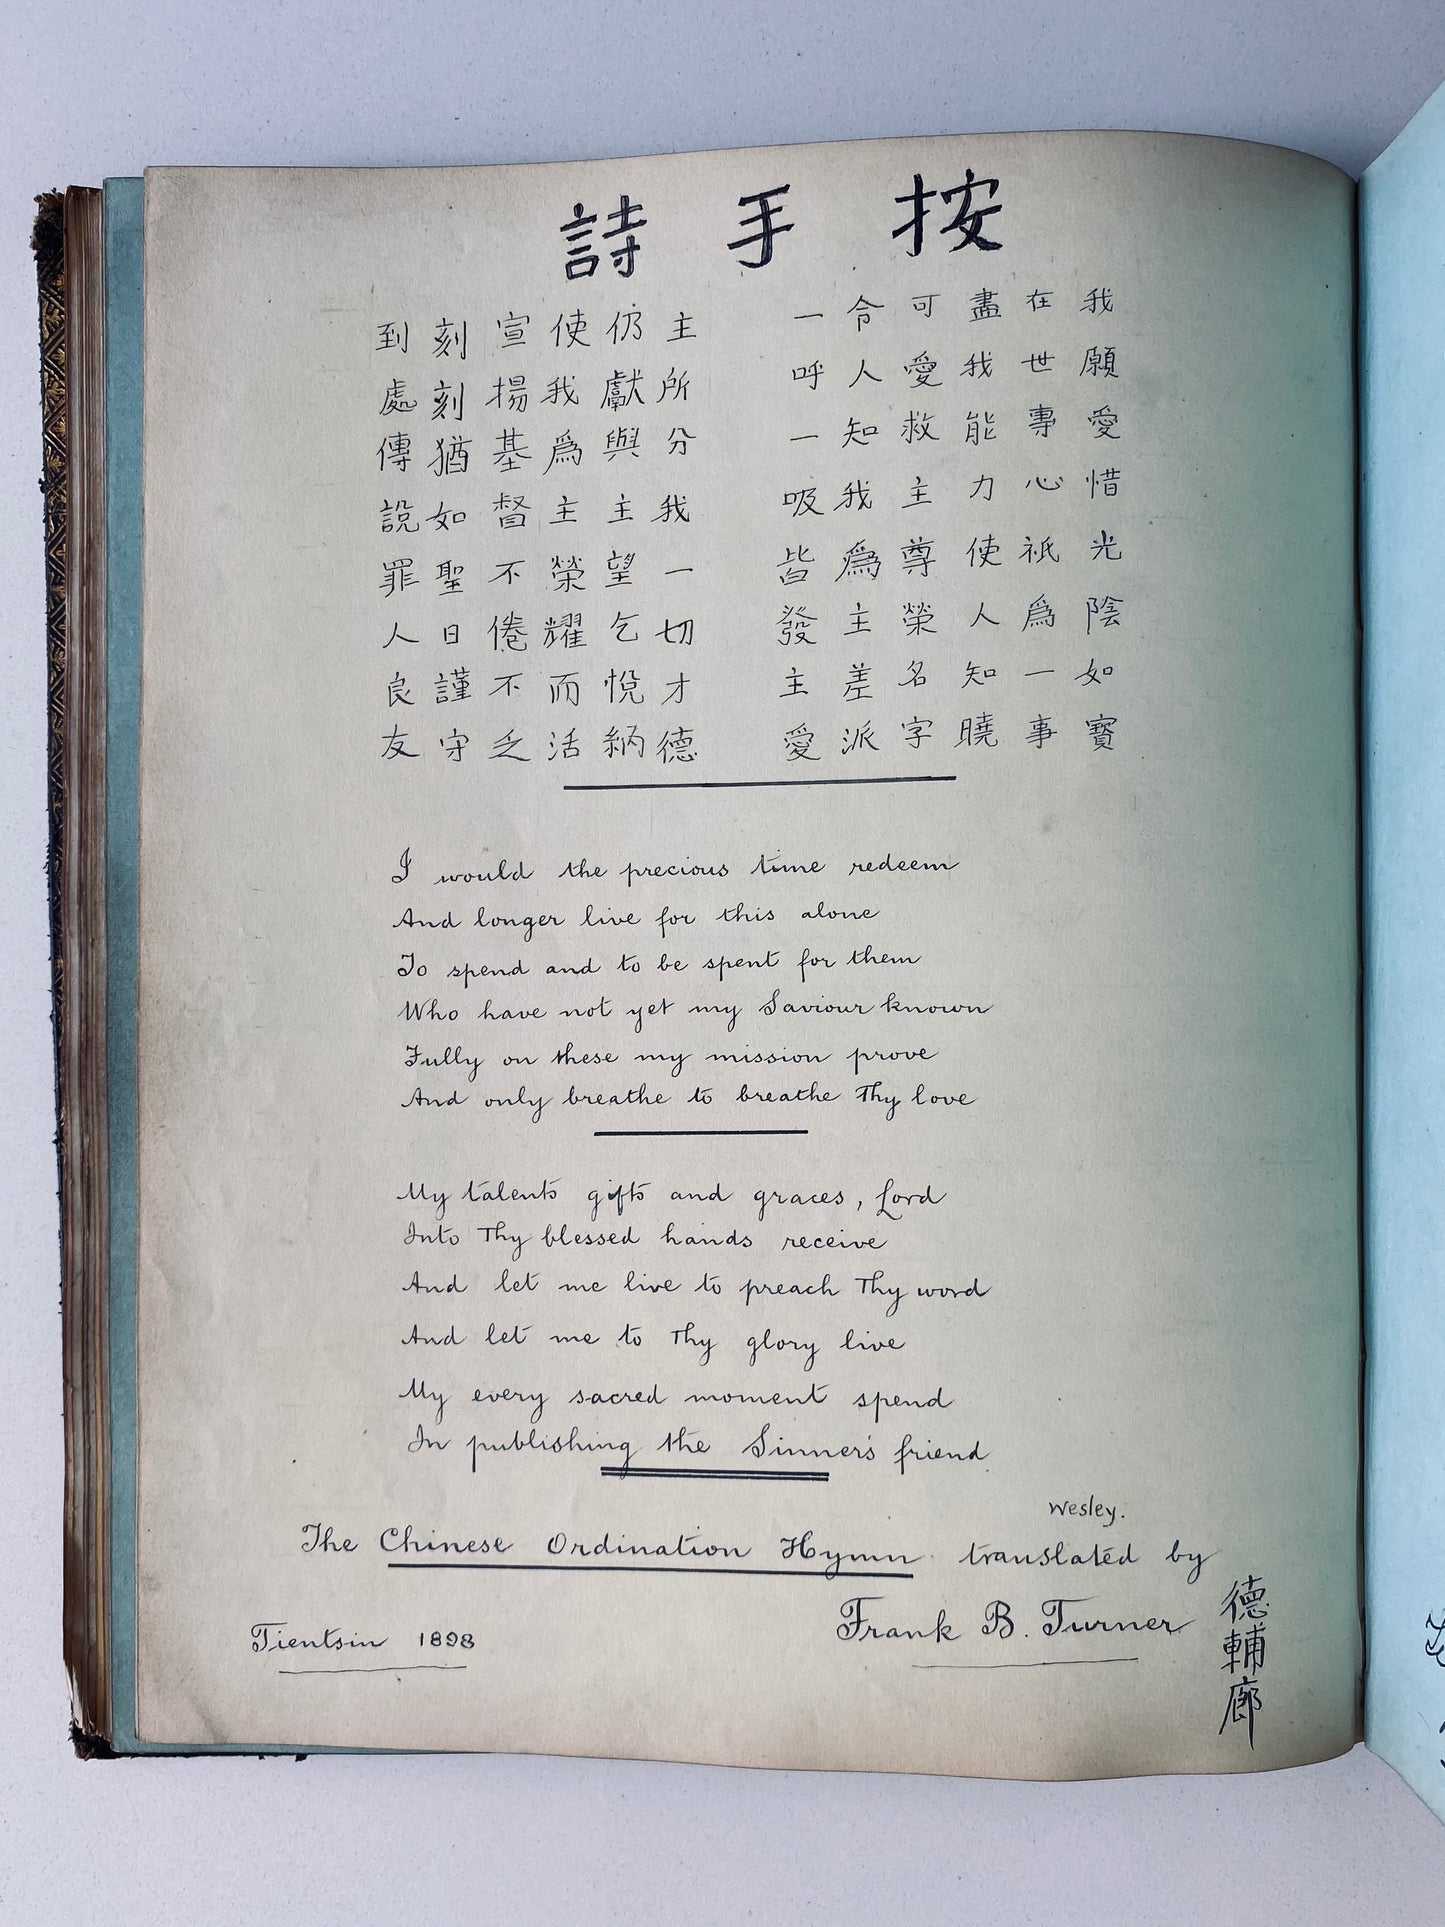 按手詩
我願愛惜光陰如寶
在世專心祇爲一事
盡我能力使人知曉
可愛救主尊榮名字
令人知我爲主差派
一呼一吸皆發主愛
主所分我一切才德
仍獻與主望乞悅納
使我爲主榮耀而活
宣揚基督不倦不乏
刻刻猶如聖日謹守
到處傳說罪人良友
I would the precious time redeem
And longer live for this alone
To spend and to be spent for them
Who have not yet my Saviour known
Fully on these my mission prove
And only breathe to breathe Thy love
My talents gifts and graces, Lord
Into Thy blessed hands receive
And let me live to preach Thy word
And let me to Thy glory live
My every sacred moment spend
In publishing the Sinner's friend
Wesley.
The Chinese Ordination Hymn translated by
Frank B. Turner
德輔廊
Tientsin 1898